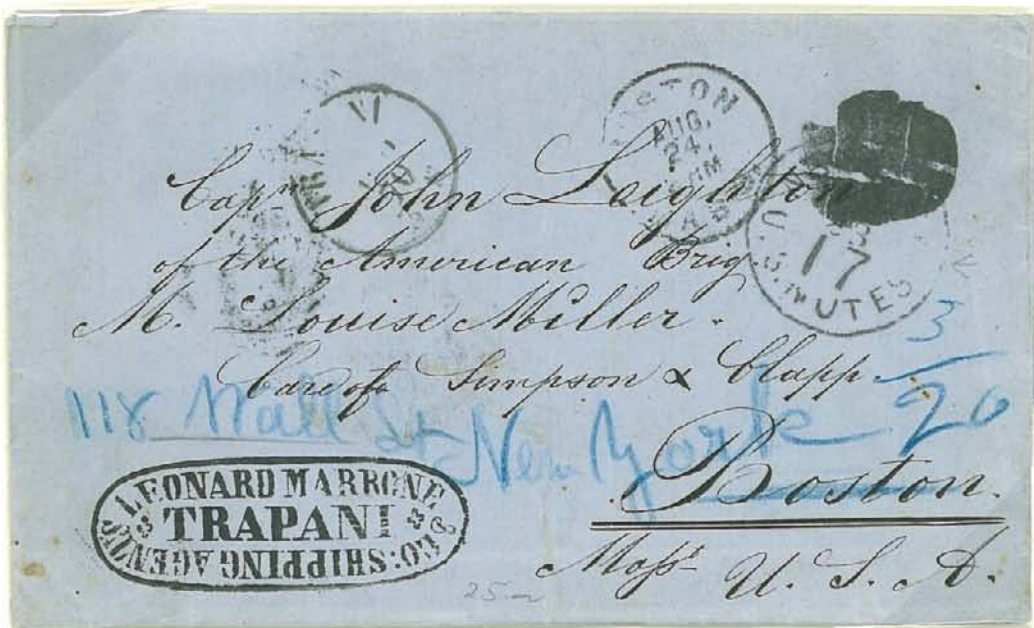 BOSTON
AUG.
24
Capn John Leighton
of the American Brig
M. Louise Miller.
Care of Simpson & Clapp
118 Wall St New York
Boston.
Mass U. S. A.
U.S. NOTES
17
3
90
LEONARD MARRONE
TRAPANI
& CO: SHIPPING AGENTS
25.-